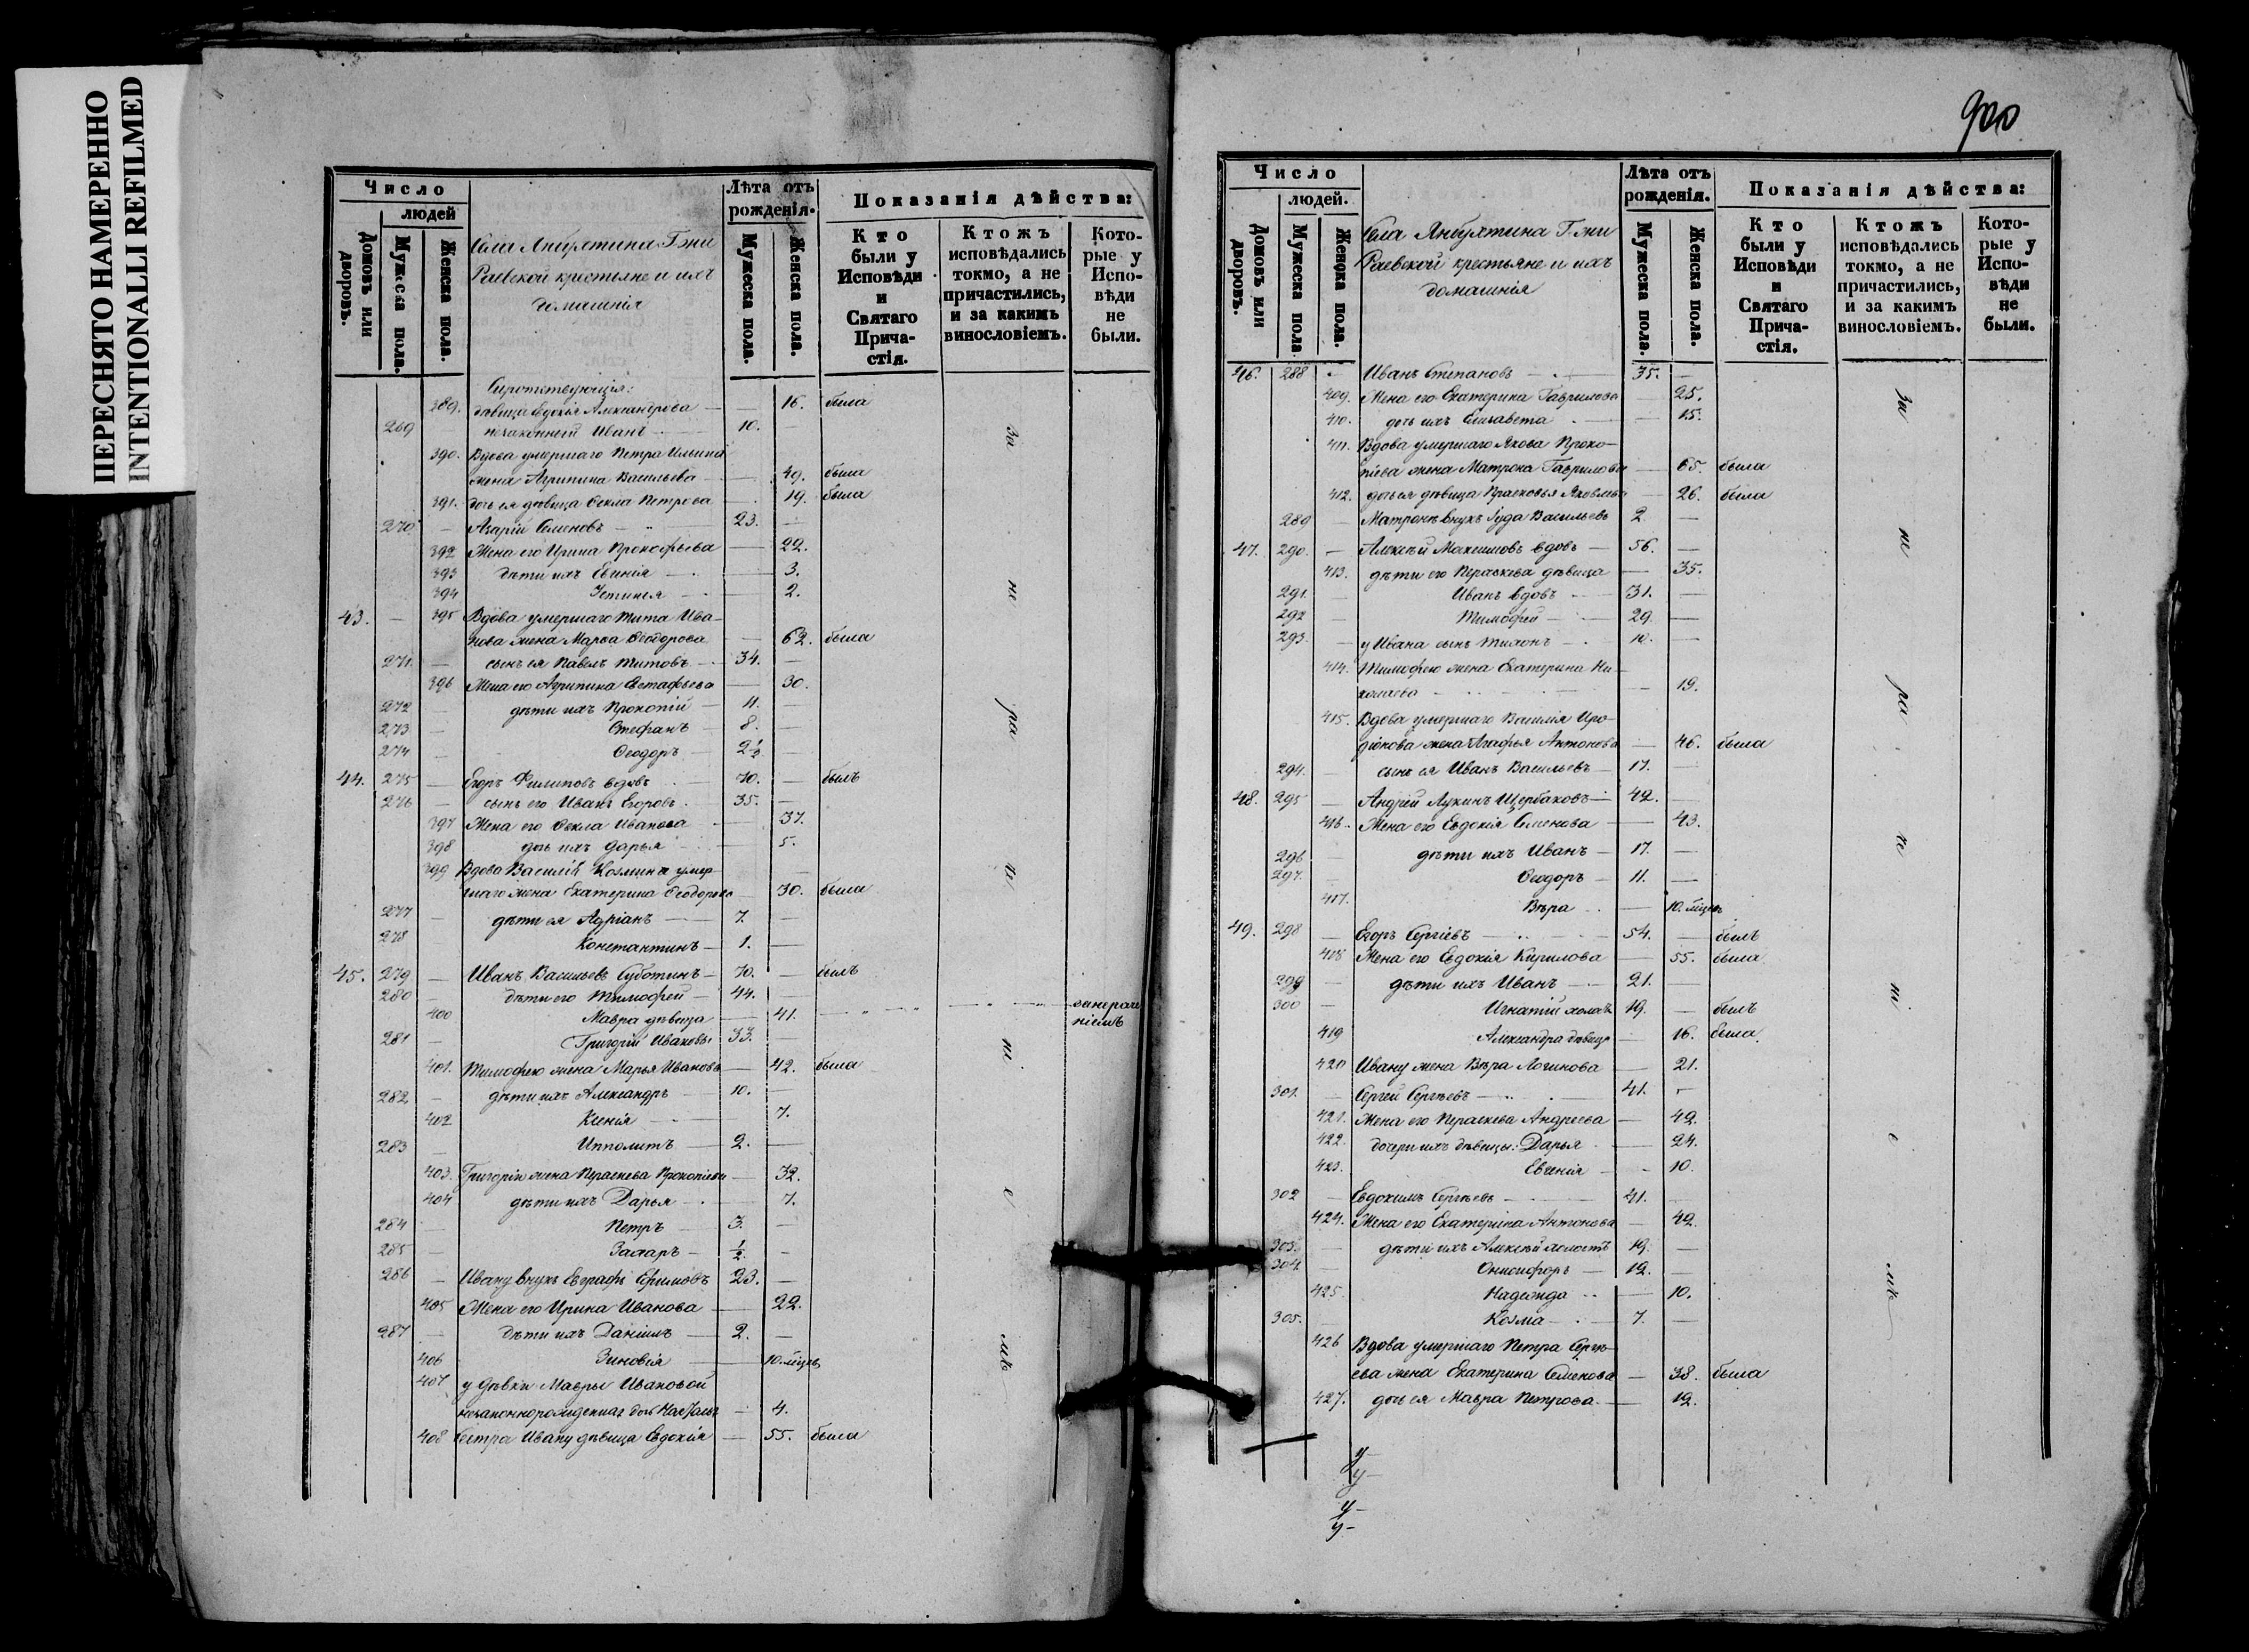 ПЕРЕСНЯТО НАМЕРЕННО
INTENTIONALLI REFILMED
Число
людей
Домовъ или дворовъ.
Мужеска пола.
Женска пола.
Села Янбухтина Г-жи
Раевской крестьяне и ихъ
домашнія
Лѣта отъ рожденія.
Мужеска пола.
Женска пола.
Показанія дѣйства:
Кто были у Исповѣди и Святаго Причастія.
Ктожъ исповѣдались токмо, а не причастились, и за какимъ винословіемъ.
Которые у Исповѣди не были.
Сиротствующія:
389. дѣвица Евдокія Александрова — 16. была
269 незаконный Иванъ 10. —
390. Вдова умершаго Петра Ильина
жена Агрипина Васильева — 49. была
391. дочь ея дѣвица Ѳекла Петрова — 19. была
270 — Азарій Семеновъ — 23. —
392 Жена его Ирина Прокофьева — 22.
393 дѣти ихъ Евгенія — 3.
394 Устинья — 2.
43. — 395 Вдова умершаго Тита Ива-
нова жена Марѳа Ѳеодорова — 62. была
271. — сынъ ея Павелъ Титовъ — 34. —
396 Жена его Агрипина Евстафьева — 30.
272 — дѣти ихъ Прокопій — 11. —
273 — Стефанъ — 8. —
274 — Ѳеодоръ — 2½ —
44. 275 — Егоръ Филиповъ вдовъ 70. — былъ
276 — сынъ его Иванъ Егоровъ. 35. —
397 Жена его Ѳекла Иванова — 37.
398 дочь ихъ Дарья — 5.
399 Вдова Василія Козмина умер-
шаго жена Екатерина Ѳеодорова — 30. была
277 — дѣти ея Адріанъ — 7. —
278 Константинъ — 1. —
45. 279 — Иванъ Васильевъ Суботинъ — 70. — былъ
280 — дѣти его Тимофей — 44. —
400 Мавра дѣвица — 41. —
281 — Григорій Ивановы 33. —
401. Тимофею жена Марья Иванова — 42. была
282 — дѣти ихъ Александръ 10.
402 Ксенія — 7.
283 — Ипполитъ — 2. —
403. Григорію жена Пераскева Прокопіева — 32.
404 дѣти ихъ Дарья — 7.
284 — Петръ 3. —
285 — Захаръ — ½ —
286 — Ивану внукъ Евграфъ Ефимовъ 23. —
405 Жена его Ирина Иванова — 22.
287 — дѣти ихъ Даніилъ — 2. —
406 Зиновія — 10. мѣцевъ
407 у дѣвки Мавры Ивановой
незаконнорожденная дочь — 4.
408 Сестра Ивану дѣвица Евдокія — 55. была
за не ра че ні е мъ
900
Число
людей.
Домовъ или дворовъ.
Мужеска пола
Женска пола.
Села Янбухтина Г-жи
Раевской крестьяне и ихъ
домашнія
Лѣта отъ рожденія.
Мужеска пола.
Женска пола.
Показанія дѣйства:
Кто были у Исповѣди и Святаго Причастія.
Ктожъ исповѣдались токмо, а не причастились, и за какимъ винословіемъ.
Которые у Исповѣди не были.
46. 288 — Иванъ Степановъ — 35. —
409. Жена его Екатерина Гаврилова — 25.
410. дочь ихъ Елизавета — 15.
411. Вдова умершаго Якова Проко-
піева жена Матрона Гаврилова — 65. была
412. дочь ея дѣвица Прасковья Яковлева — 26. была
289 — Матронѣ внукъ Іуда Васильевъ 2 —
47. 290. — Алексѣй Максимовъ вдовъ — 56. —
413. дѣти его Пераскева дѣвица — 35.
291. Иванъ вдовъ — 31. —
292 Тимофей — 29. —
293. — у Ивана сынъ Тихонъ — 10. —
414. Тимофею жена Екатерина Ни-
колаева — 19.
415. Вдова умершаго Василія Иро-
діонова жена Агафья Антонова — 46. была
294. — сынъ ея Иванъ Васильевъ — 17. —
48. 295 — Андрей Лукинъ Щербаковъ — 42. —
416. Жена его Евдокія Семенова — 43.
296 — дѣти ихъ Иванъ — 17. —
297. — Ѳеодоръ — 11. —
417. Вѣра — 10. мѣцевъ
49. 298 — Егоръ Сергіевъ — 54. — былъ
418 Жена его Евдокія Кирилова — 55. была
299 — дѣти ихъ Иванъ — 21. —
300 — Игнатій холостъ 19. — былъ
419 Александра дѣвица — 16. была
420 Ивану жена Вѣра Логинова — 21.
301. — Сергей Сергѣевъ — 41. —
421. Жена его Пераскева Андреева — 42.
422. дочери ихъ дѣвицы: Дарья — 24.
423. Евгенія — 10.
302 — Евдокимъ Сергѣевъ — 41. —
424. Жена его Екатерина Антонова — 42.
303. — дѣти ихъ Алексѣй холостъ 19. —
304 — Онисифоръ — 12. —
425. Надежда — 10.
305. — Козма — 7. —
426 Вдова умершаго Петра Сергѣ-
ева жена Екатерина Семенова — 38. была
427. дочь ея Мавра Петрова — 12.
за не ра че ні е мъ